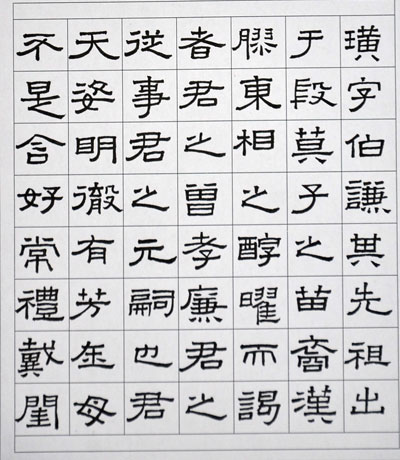 璜字伯謙其先祖出
于段莫子之苗裔漢
膠東相之醇曜而謁
者君之曾孝廉君之
從事君之元嗣也君
天姿明徹有芳在母
不是含好常禮戴閨